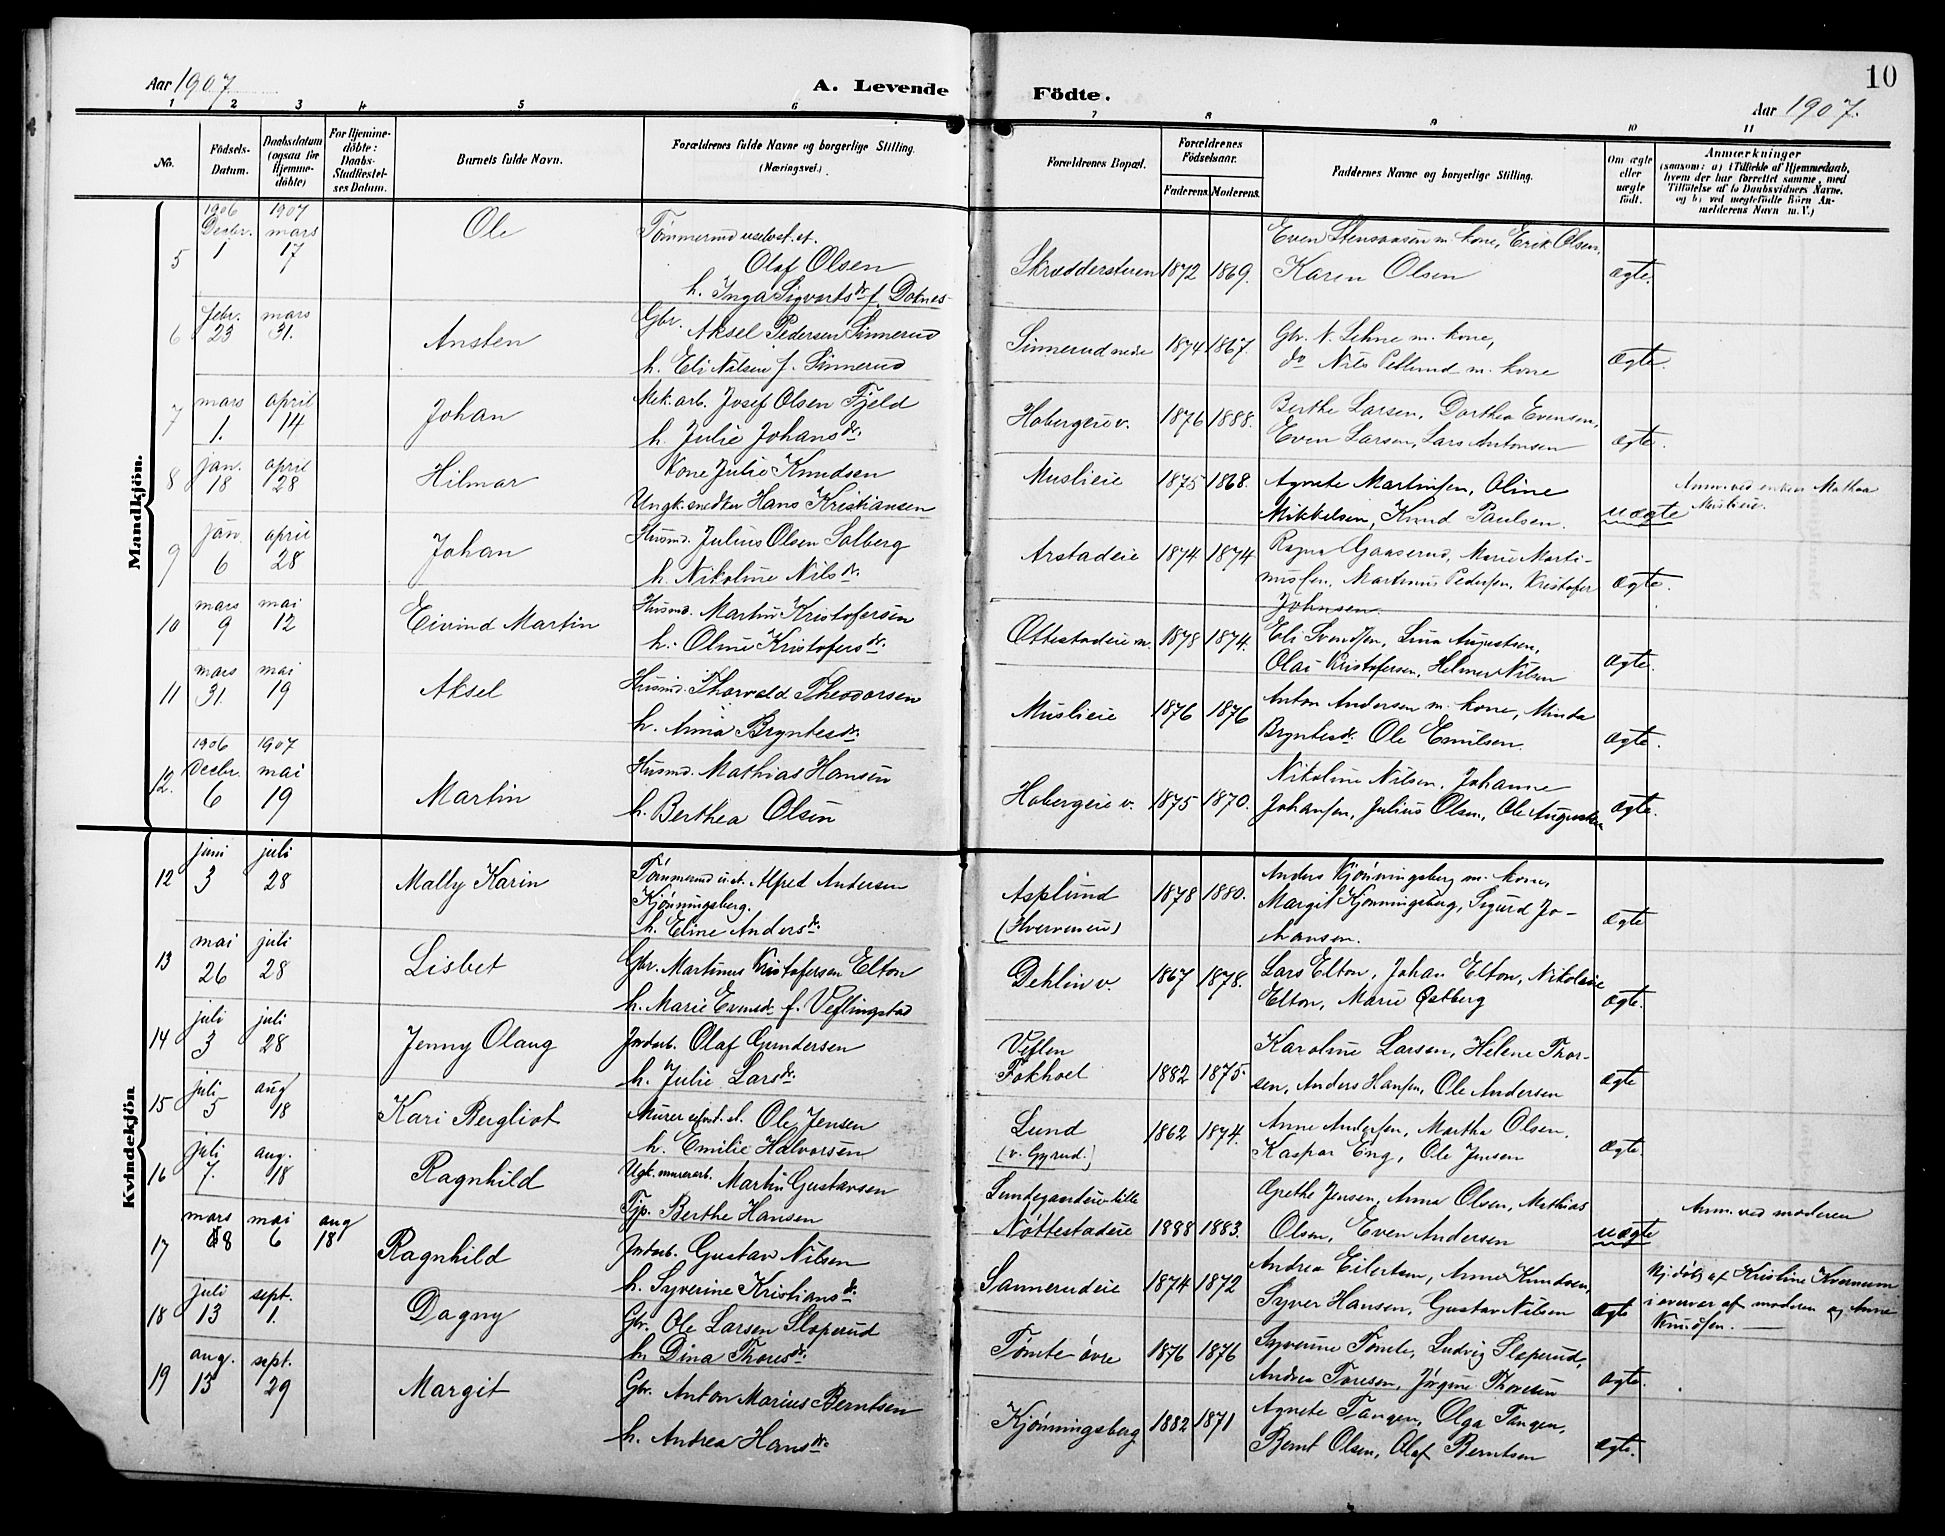 Aar 1907.
A. Levende Födte.
Aar 1907.
10
1 2 3 4 5 6 7 8 9 10 11
No.
Födsels-Datum.
Daabsdatum (ogsaa for Hjemmedöbte)
For Hjemmedöbte: Daabs-Stadfæstelses Datum.
Barnets fulde Navn.
Forældrenes fulde Navne og borgerlige Stilling.
(Næringsvei.)
Forældrenes Bopæl.
Forældrenes Födselsaar.
Faderens. Moderens.
Faddernes Navne og borgerlige Stilling.
Om ægte eller uægte födt.
Anmærkninger
(saasom: a) i Tilfælde af Hjemmedaab, hvem der har forrettet samme, med Tilföielse af to Daabsvidners Navne, og b) ved uægtefödte Börn Anmelderens Navn m. V.)
Mandkjön.
5 1906 Decbr. 1 1907 mars 17 Ole Tömmermd selvst. st.
Olaf Olsen
h. Inga Sigvartsdr. f. Dotnes
Skræddersteien 1872 1869. Even Stensaasen m. kone, Erik Olsen,
Karen Olsen ægte.
6 febr. 23 mars 31. Ansten Gbr. Aksel Pedersen Sinnerud
h. Eli Nilsen f. Sinnerud
Sinnerud nedre 1874 1867. Gbr. N. Lehne m. kone,
do Nils Petlund m. kone ægte.
7 mars 1. april 14 Johan Mek. arb. Josef Olsen Fjeld
h. Julie Johansdr.
Hobergeie v. 1876 1888. Berthe Larsen, Dorthea Evensen,
Even Larsen, Lars Antonsen ægte.
8 jan. 18 april 28 Hilmar Kone Julie Knudsen
Ungk. snedker Hans Kristiansen
Muslieie 1875 1868. Agnete Martinsen, Oline
Mikkelsen, Knud Paulsen. uægte
Anm. ved enken Mathea
Muslieie.
9 jan. 6 april 28 Johan Husmd. Julius Olsen Solberg
h. Nikoline Nilsdr.
Arstadeie 1874 1874 Ragna Gaaserud, Marie Marti-
nussen, Martinus Pedersen, Kristofer
Johnsen. ægte.
10 mars 9 mai 12 Eivind Martin Husmd. Martin Kristofersen
h. Oline Kristofersdr.
Ottestadeie m. 1878 1874. Eli Svendsen, Lina Augustsen,
Olai Kristofersen, Helmer Nilsen ægte.
11 mars 31. mai 19 Aksel Husmd. Thorvald Theodorsen
h. Anna Bryntesdr.
Muslieie 1876 1876 Anton Andersen m. kone, Minda
Bryntesdr. Ole Emilsen. ægte.
12. 1906 Decbr. 6 1907 mai 19 Martin Husmd. Mathias Hansen
h. Berthea Olsen
Hobergeie v. 1875 1870. Nikoline Nilsen, Johanne
Johansen, Julius Olsen, Ole Augustsen ægte.
Kvindekjön
12 juni 3 juli 28 Mally Karin Tömmermd u. st. Alfred Andersen
Kjönningsberg.
h. Eline Andersdr.
Asplund
(Kvernenie) 1878 1880. Anders Kjönningsberg m. kone,
Margit Kjönningsberg, Sigurd Jo-
hansen. ægte
13 mai 26 juli 28 Lisbet Gbr. Martinus Kristofersen Elton
h. Marie Evensdr. f. Veflingstad
Dehlin v. 1867 1878. Lars Elton, Johan Elton, Nikoline
Elton, Marie Østberg ægte.
14 juli 3 juli 28 Jenny Olaug Jordarb. Olaf Gundersen
h. Julie Larsdr.
Veflen
Fokhoel 1882 1875. Karoline Larsen, Helene Thor-
sen, Anders Hansen, Ole Andersen ægte
15 juli 5 aug 18 Kari Bergliot Murer selvst. st. Ole Jensen
h. Emilie Halvorsen
Lund
(v. Gyrud.) 1862 1874. Anne Andersen, Martha Olsen,
Kaspar Eng, Ole Jensen ægte.
16 juli 7. aug. 18 Ragnhild Ugk. murerarb. Martin Gustavsen
Tjp. Berthe Hansen
Sundgaardeie lille
Nöttestadeie 1888 1883. Grethe Jensen, Anna Olsen, Mathias
Olsen, Even Andersen uægte
Anm. ved moderen
17 mars 8 mai 6 aug 18 Ragnhild Jordarb. Gustav Nilsen
h. Syverine Kristiansdr.
Sannerudeie 1874 1872 Andrea Eilertsen, Anne Knudsen,
Syver Hansen, Gustav Nilsen ægte
Hj. döbt af Kristine Kvernum
i overvær af moderen og Anne
Knudsen.
18 juli 13 sept. 1. Dagny Gbr. Ole Larsen Sloperud
h. Dina Thoresdr.
Tömte övre 1876 1876 Syverine Tömte, Ludvig Sloperud,
Andrea Toresen, Jörgine Thoresen ægte.
19 aug. 13 sept. 29 Margit Gbr. Anton Marius Berntsen
h. Andrea Hansdr.
Kjönningsberg 1882 1871 Agnete Tangen, Olga Tangen,
Bernt Olsen, Olaf Berntsen ægte.